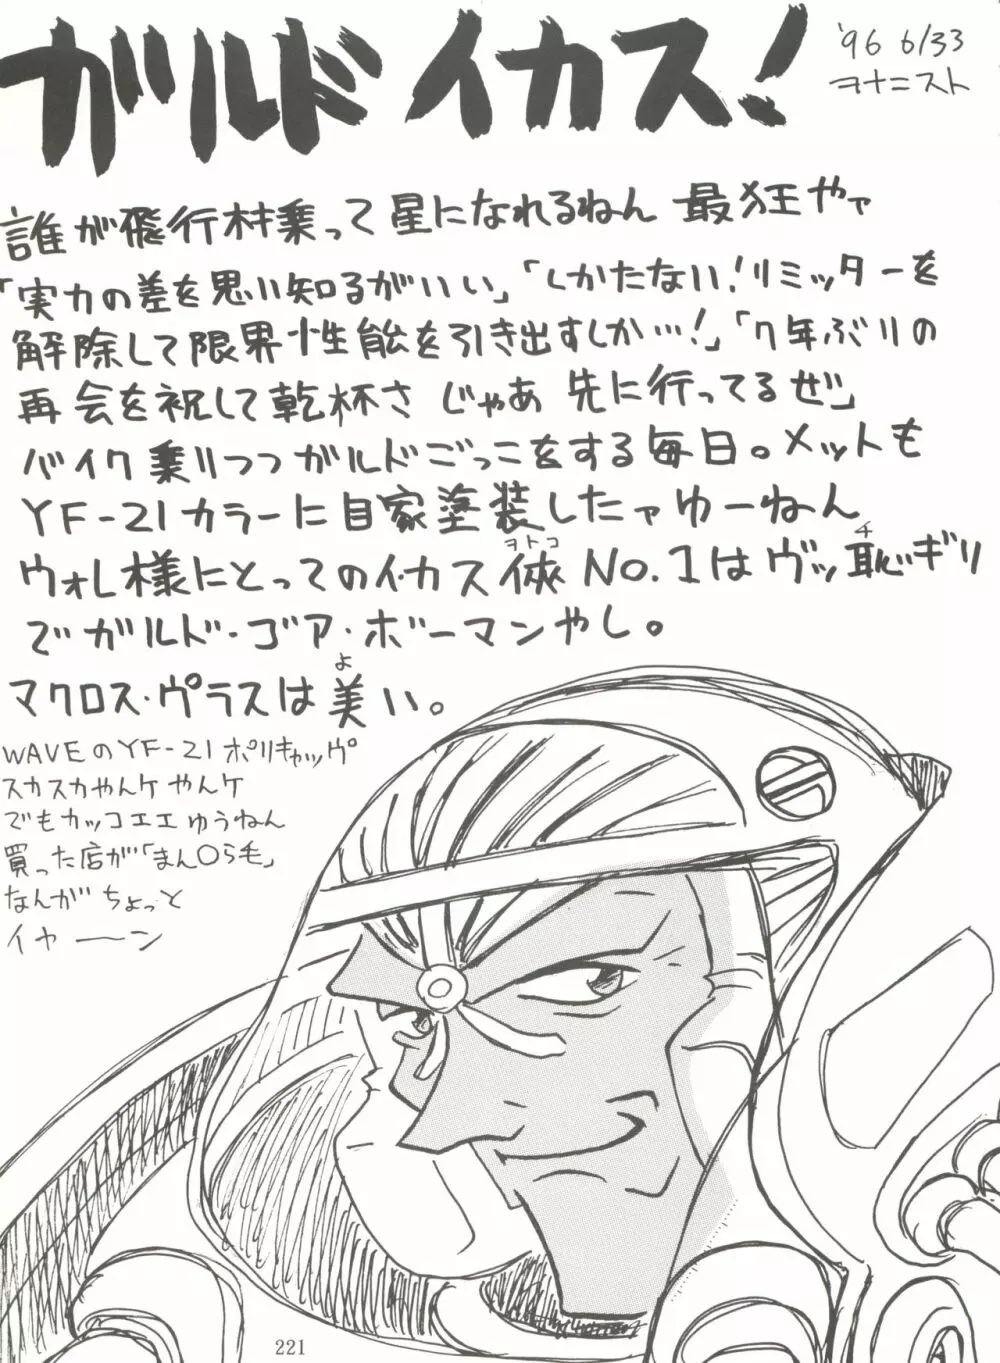 ガルド イカス!
'96 6/33
ヲナニスト
誰が飛行材乗って星になれるねん 最狂やァ
「実力の差を思い知るがいい」「しかたない!リミッターを
解除して限界性能を引き出すしか…!」「7年ぶりの
再会を祝して乾杯さ じゃあ 先に行ってるぜ」
バイク乗りつつガルドごっこをする毎日。メットも
YF-21カラーに自家塗装したァゆーねん
ヲトコ チ
ウォレ様にとってのイ・カス侠 NO.1はヴッ恥ギリ
でガルド・ゴア・ボーマンやし。
よ
マクロス・プラスは美い。
WAVEのYF-21 ポリキャップ
スカスカやんケ やんケ
でもカッコエエゆうねん
買った店が「まん〇らけ」
なんが ちょっと
イヤーーン
221